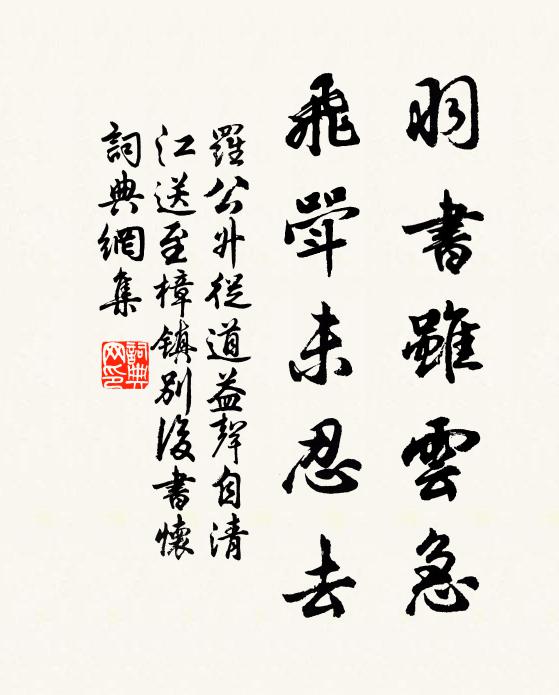 羽書雖雲急
飛斝未忍去
羅公升從道益聲自清
江送至樟鎮別後書懷
詞典網集
詞典网印